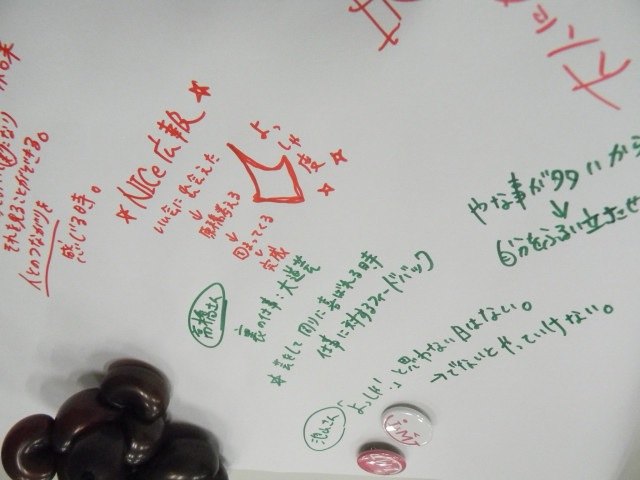 それを見ることができる。
人とのつながりを
感じる時。
☆NICE広報☆
いい会に出会えた
↓
原稿考える
↓
回ってくる
↓
完成
よっしゃ
度
やな事が多いから
↓
自分をふるい立たせ
高橋さん
裏の仕事:大道芸
☆芸をして周りに喜ばれる時
仕事に対するフィードバック
よっしゃーっと思わない日はない。
→でないとやっていけない。